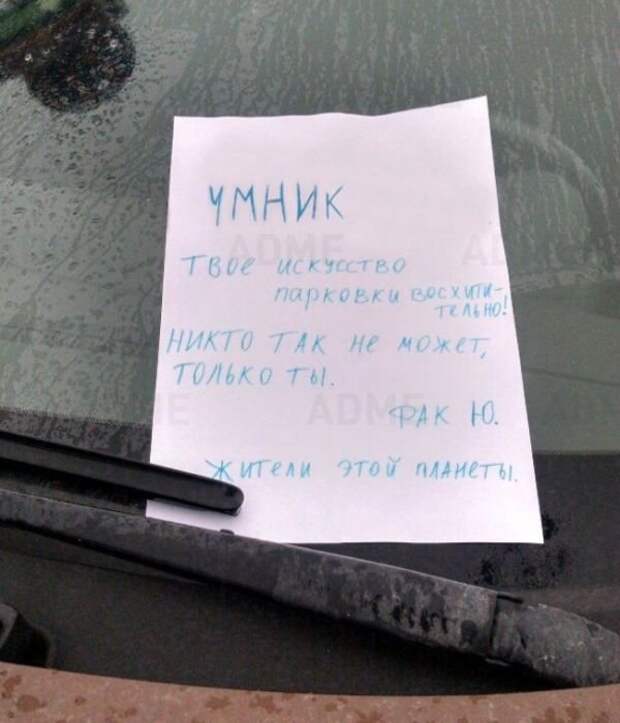 УМНИК
ТВОЕ ИСКУССТВО
ПАРКОВКИ ВОСХИТИ-
ТЕЛЬНО!
НИКТО ТАК НЕ МОЖЕТ,
ТОЛЬКО ТЫ.
ФАК Ю.
ЖИТЕЛИ ЭТОЙ ПЛАНЕТЫ.
ADME
ADME